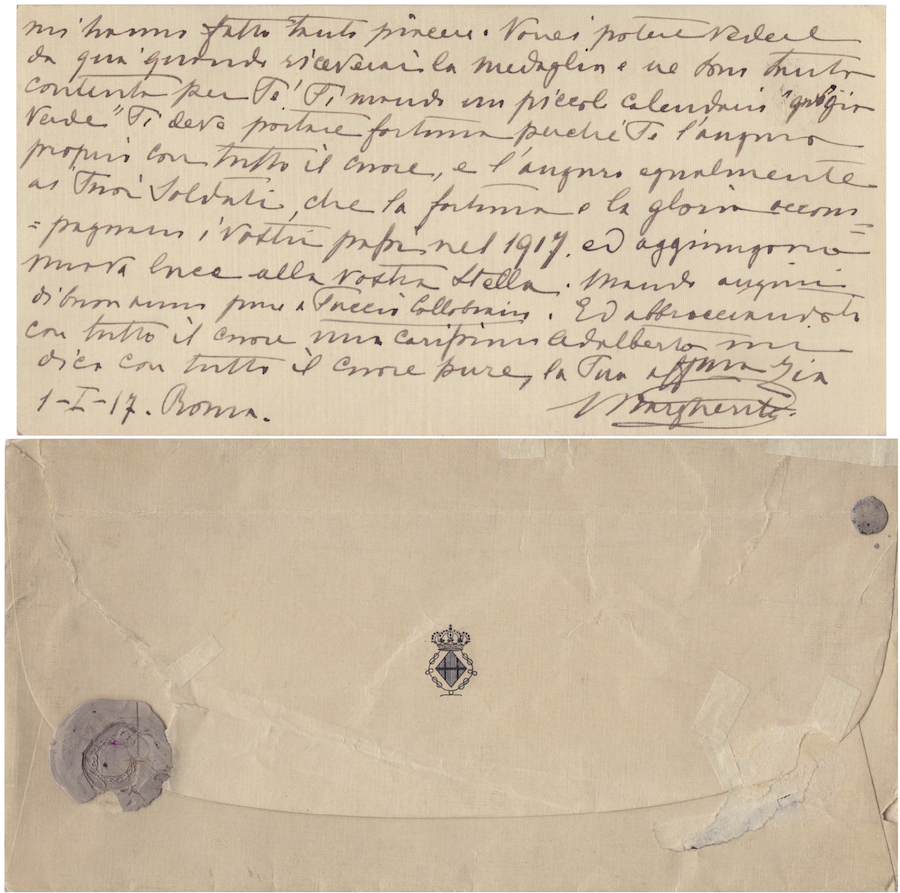 mi hanno fatto tanto piacere. Vorrei potere vedere
da qui quando riceverai la medaglia e ne sono tanto
contenta per Te! Ti mando un piccolo calendario "grigio
verde" Ti deve portare fortuna perché Te l'auguro
proprio con tutto il cuore, e l'auguro egualmente
ai Tuoi Soldati, che la fortuna e la gloria accom=
=pagnino i Vostri passi nel 1917. ed aggiungano
nuova luce alla vostra Stella. Mando auguri
di buon anno pure a Tuccio. Ed abbracciandoti
con tutto il cuore mio carissimo Adalberto mi
dico con tutto il cuore pure, la Tua affma Zia
1-I-17. Roma. Margherita.